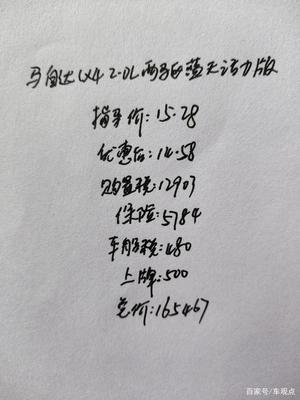 马自达CX4 2.0L两驱蓝天活力版
指导价:15.28
优惠后:14.58
购置税:12903
保险:5784
车船税:480
上牌:500
总价:165467
百家号/车观点